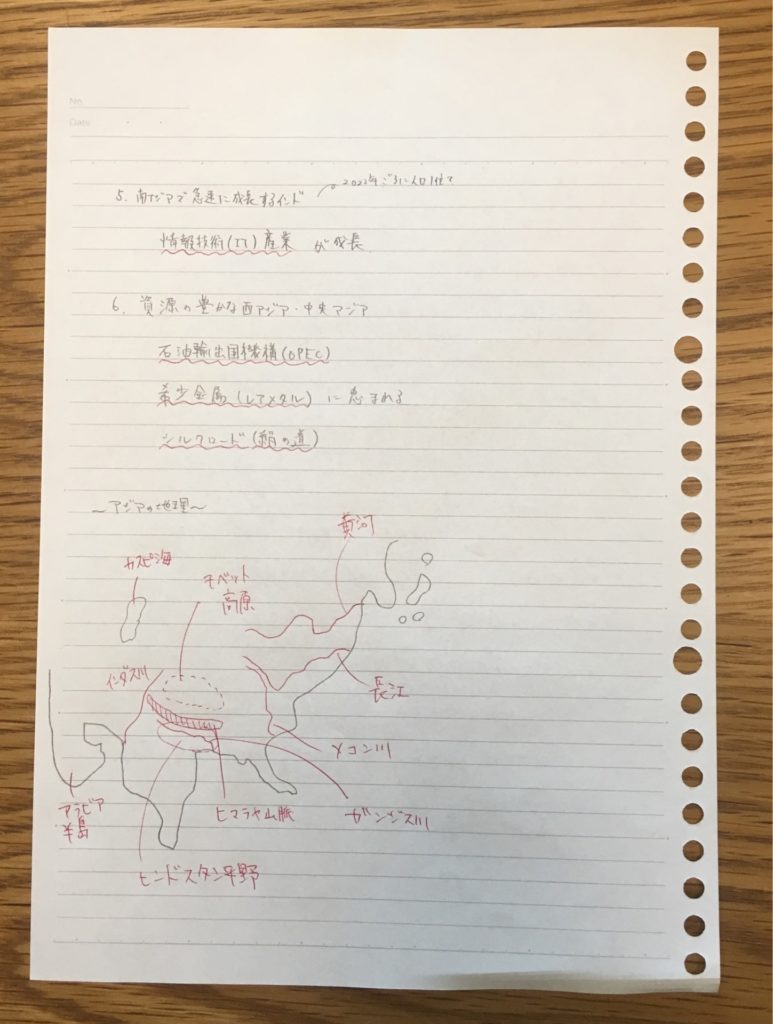 No.
Date
2022年ごろに人口1位で
5. 南アジアで急速に成長するインド
情報技術(IT)産業 が成長
6. 資源の豊かな西アジア・中央アジア
石油輸出国機構(OPEC)
希少金属(レアメタル) に恵まれる
シルクロード(絹の道)
〜アジアの地理〜
黄河
カスピ海
チベット
高原
インダス川
長江
メコン川
アラビア
半島
ヒマラヤ山脈
ガンジス川
ヒンドスタン平野